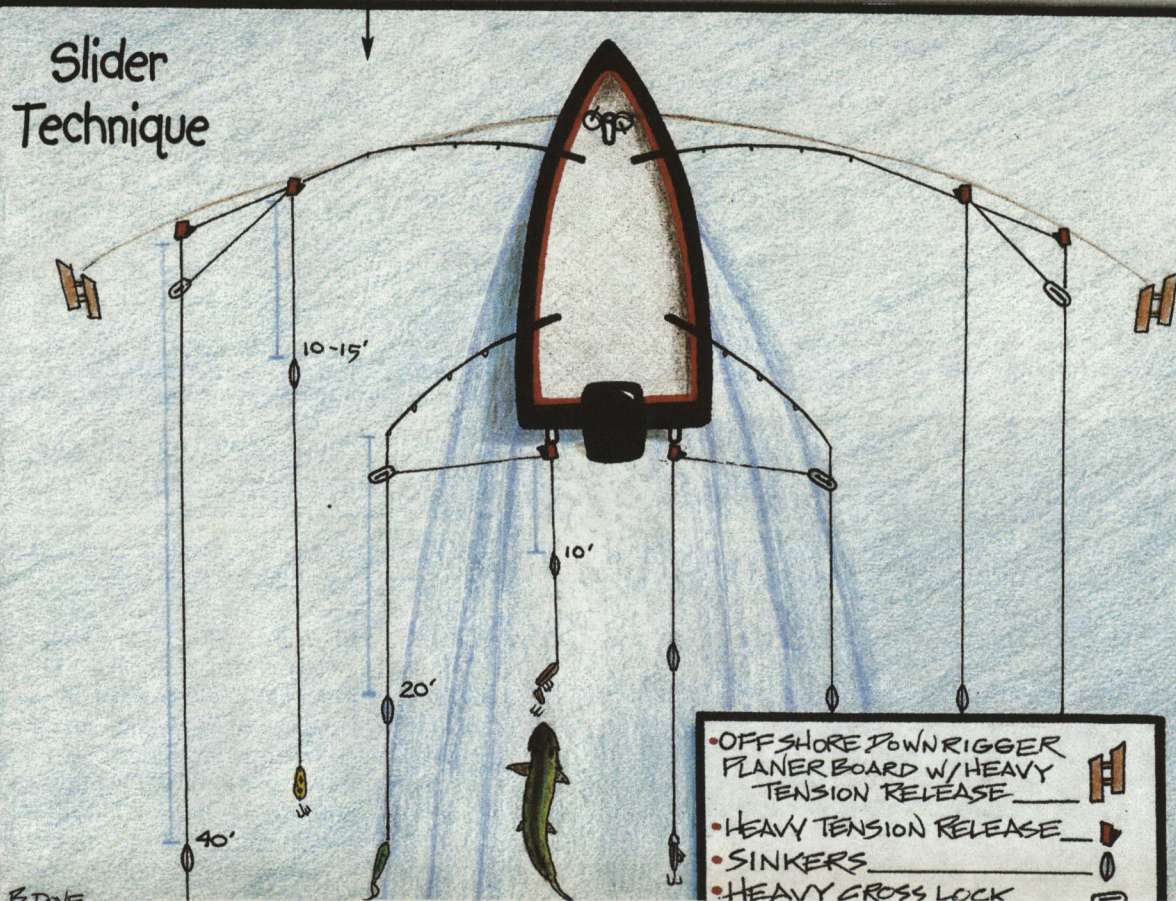 Slider
Technique
10-15'
10'
20'
40'
•OFFSHORE DOWNRIGGER
PLANER BOARD W/HEAVY
TENSION RELEASE
•HEAVY TENSION RELEASE
•SINKERS
•HEAVY CROSS LOCK